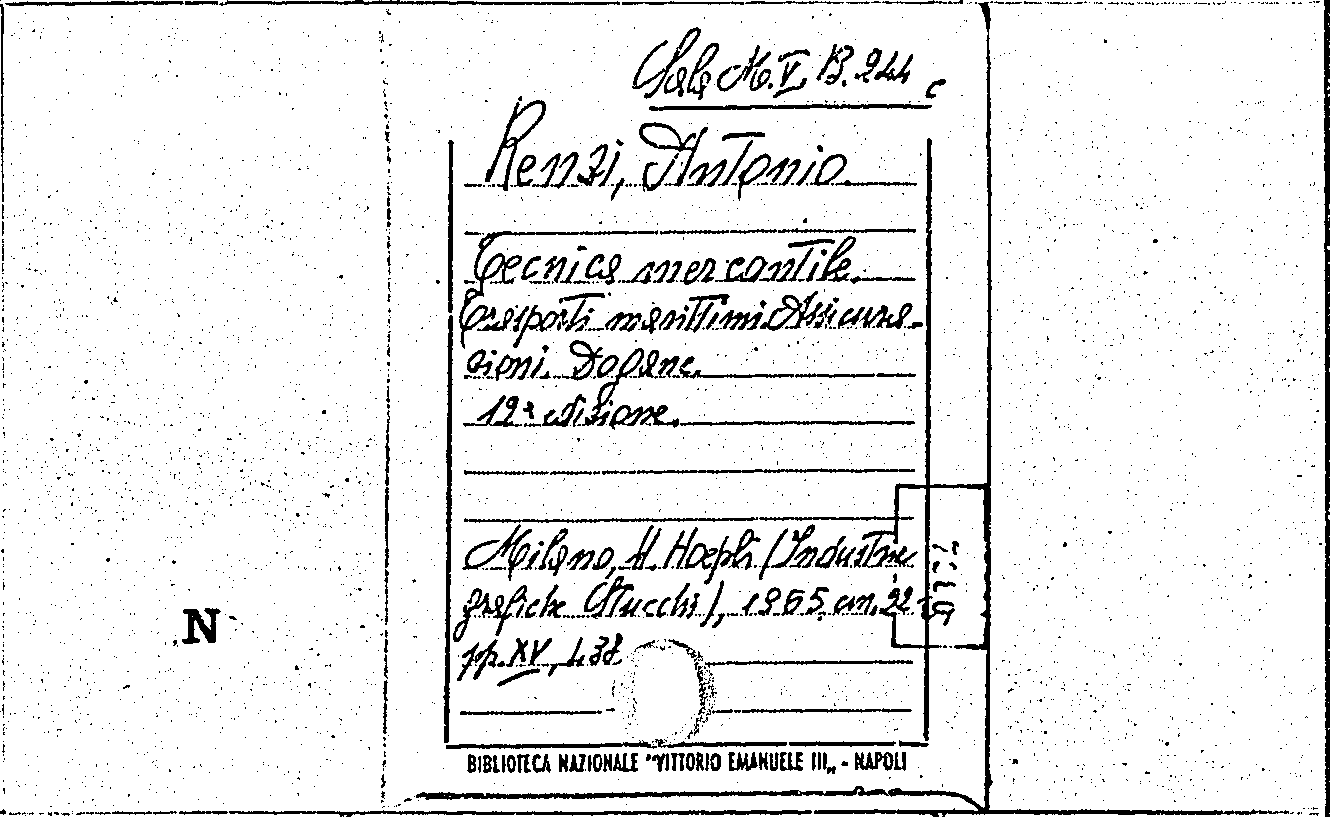 Sala Mo. V. B. 244 c
Renzi, Antonio
Tecnica mercantile.
Trasporti marittimi. Assicura-
zioni. Dogane.
12ª edizione.
Milano, U. Hoepli (Industrie
grafiche Stucchi), 1955, cm. 22
pp. XV, 438
N
BIBLIOTECA NAZIONALE "VITTORIO EMANUELE III„ - NAPOLI